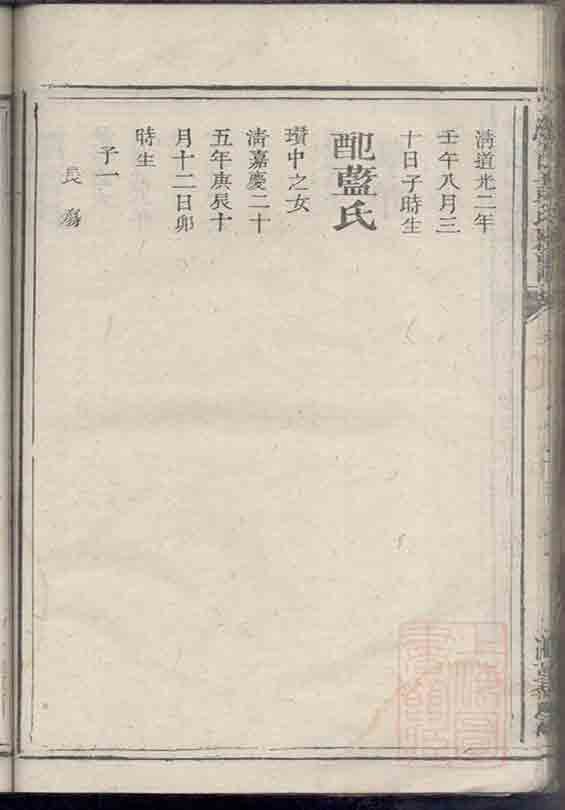 清道光二年
壬午八月三
十日子時生
配藍氏
瓚中之女
清嘉慶二十
五年庚辰十
月十二日卯
時生
子一
長